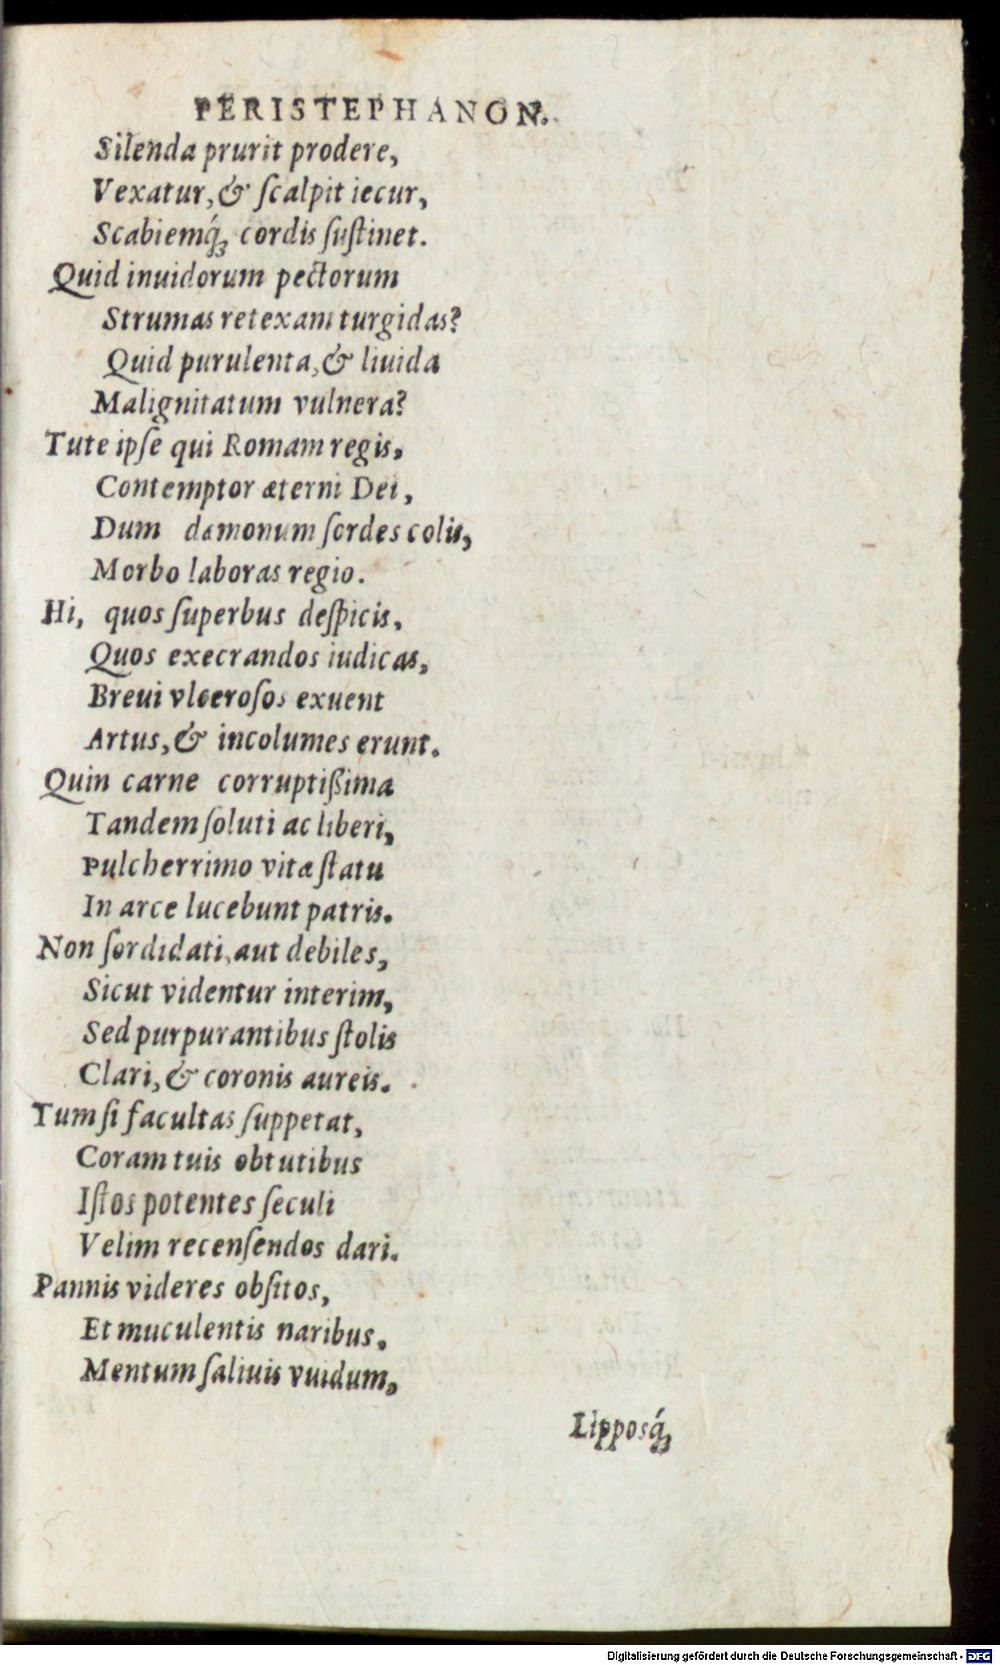 PERISTEPHANON.
Silenda prurit prodere,
Vexatur, & ſcalpit iecur,
Scabiemq́; cordis ſuſtinet.
Quid inuidorum pectorum
Strumas retexam turgidas?
Quid purulenta, & liuida
Malignitatum vulnera?
Tute ipſe qui Romam regis,
Contemptor æterni Dei,
Dum dæmonum ſordes colis,
Morbo laboras regio.
Hi, quos ſuperbus deſpicis,
Quos execrandos iudicas,
Breui vlceroſos exuent
Artus, & incolumes erunt.
Quin carne corruptißima
Tandem ſoluti ac liberi,
Pulcherrimo vitæ ſtatu
In arce lucebunt patris.
Non ſordidati, aut debiles,
Sicut videntur interim,
Sed purpurantibus ſtolis
Clari, & coronis aureis.
Tum ſi facultas ſuppetat,
Coram tuis obtutibus
Iſtos potentes ſeculi
Velim recenſendos dari.
Pannis videres obſitos,
Et muculentis naribus,
Mentum ſaliuis vuidum,
Lipposq́;
Digitalisierung gefördert durch die Deutsche Forschungsgemeinschaft - DFG